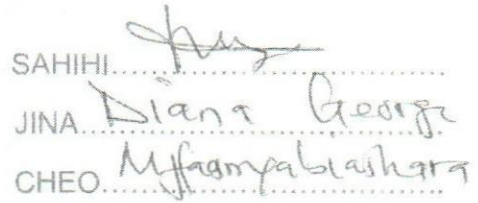 SAHIHI
JINA Diana George
CHEO Mfaanyabiashara